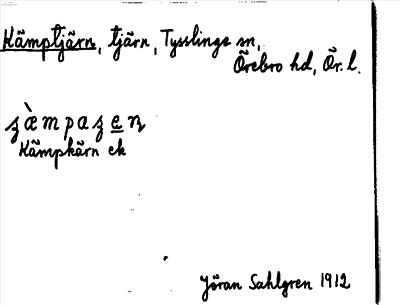 Kämptjärn, tjärn, Tysslinge sn,
Örebro hd, Ör. l.
Kämpkärn ek
Jöran Sahlgren 1912